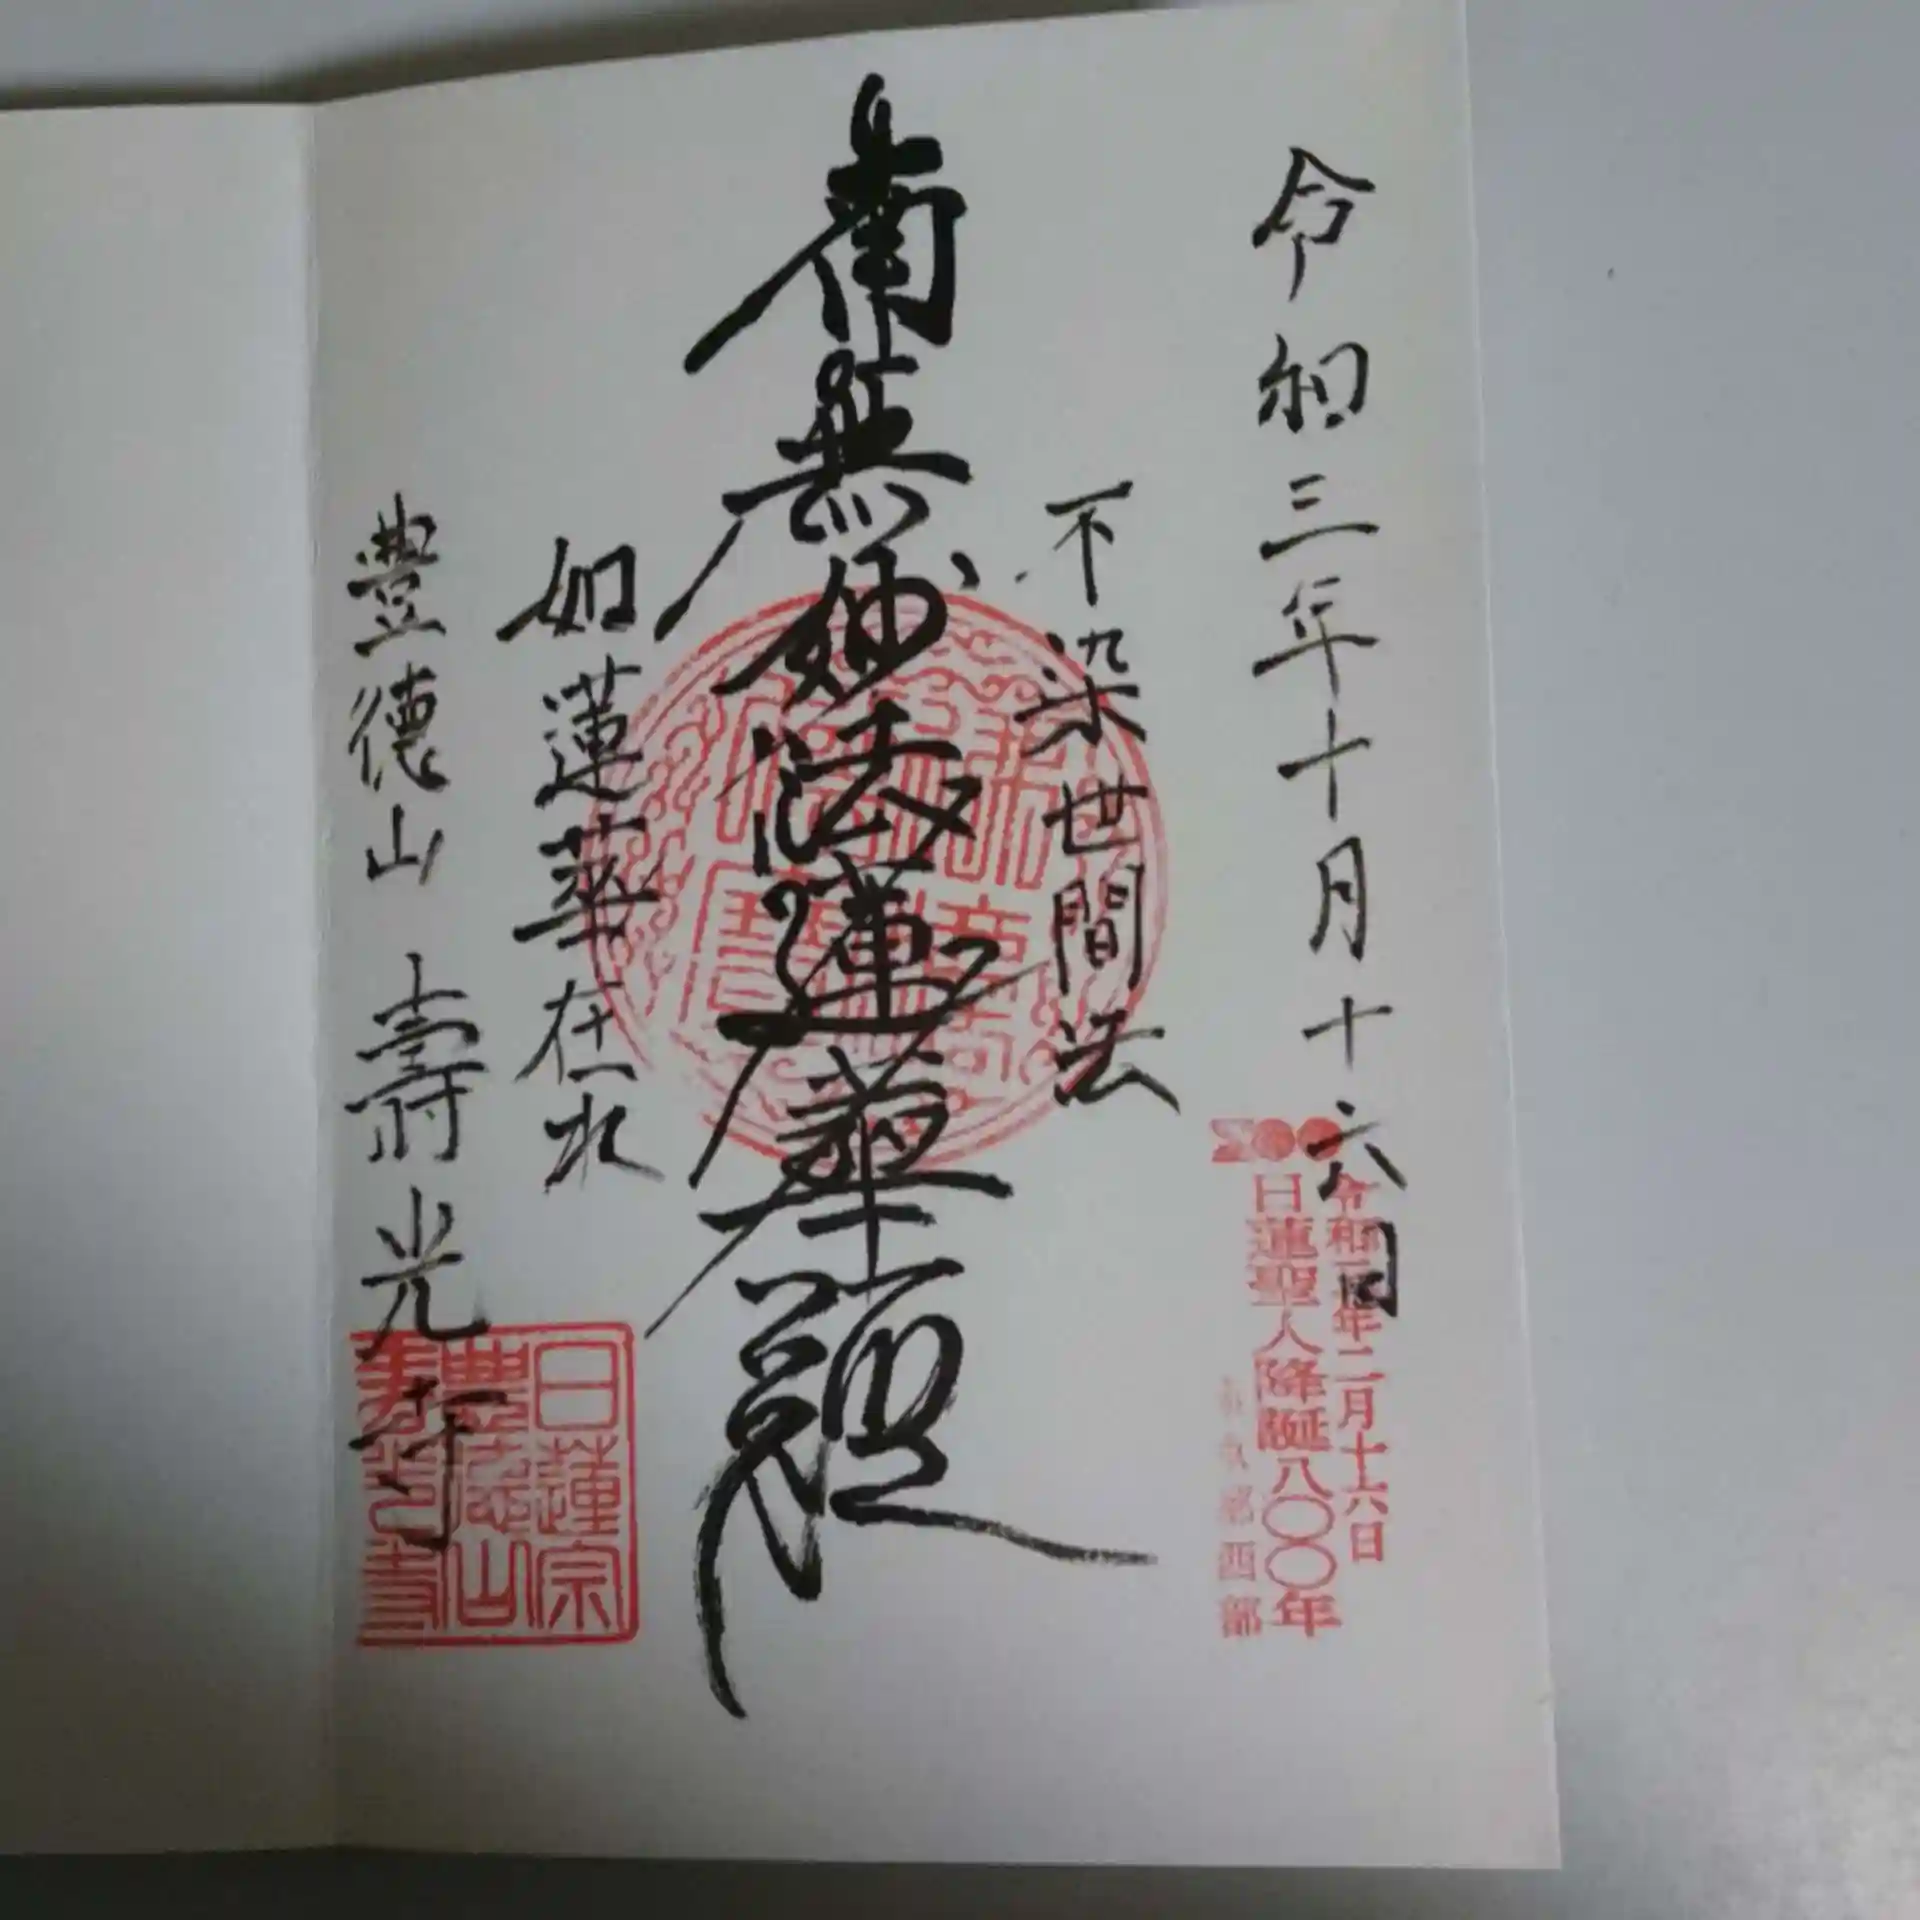 令和三年十月十六日
令和三年二月十六日
日蓮聖人降誕八〇〇年
西部
不染世間法
南無妙法蓮華経
如蓮華在水
豊徳山 壽光寺
日蓮宗
豊徳山
壽光寺